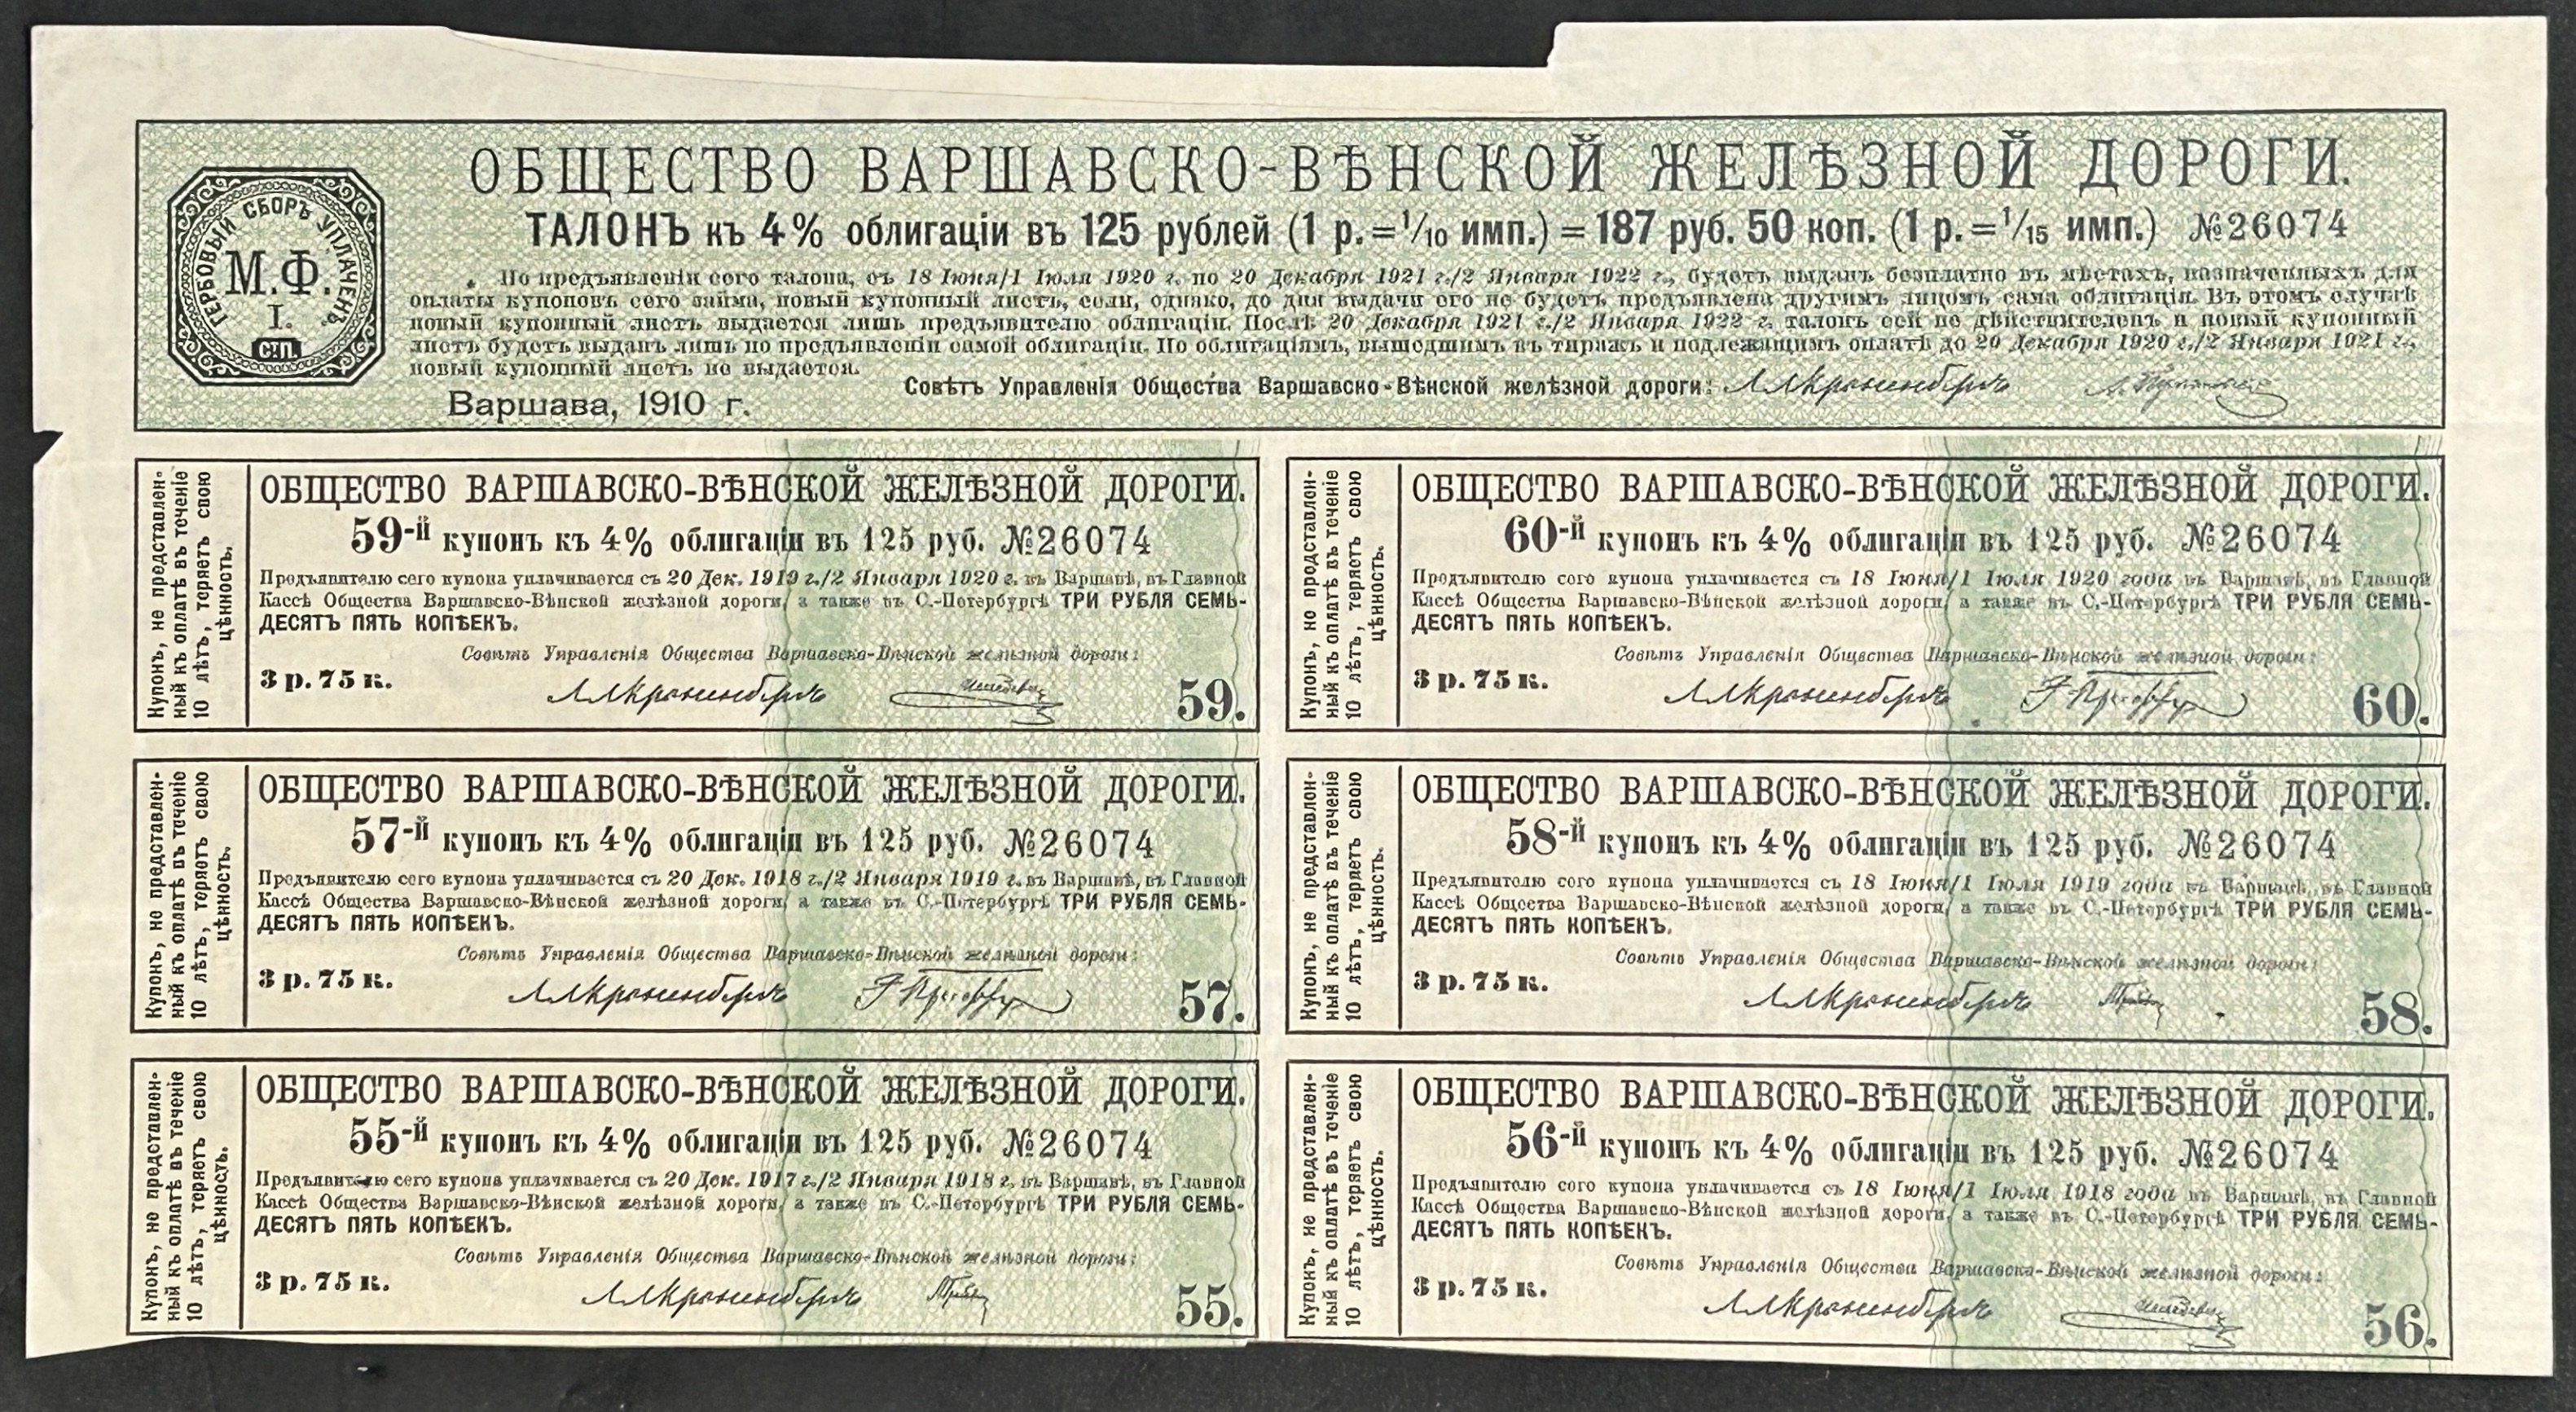 ОБЩЕСТВО ВАРШАВСКО-ВѢНСКОЙ ЖЕЛѢЗНОЙ ДОРОГИ.
ТАЛОНЪ къ 4% облигаціи въ 125 рублей (1 р.=1/10 имп.) = 187 руб. 50 коп. (1 р.=1/15 имп.) №26074
ГЕРБОВЫЙ СБОРЪ УПЛАЧЕНЪ.
М.Ф.
I.
С.П.
По предъявленіи сего талона, съ 18 Іюня/1 Іюля 1920 г. по 20 Декабря 1921 г./2 Января 1922 г., будетъ выданъ безплатно въ мѣстахъ, назначенныхъ для
оплаты купоновъ сего займа, новый купонный листъ, если, однако, до дня выдачи его не будетъ предъявлена другимъ лицомъ сама облигація. Въ этомъ случаѣ
новый купонный листъ выдается лишь предъявителю облигаціи. Послѣ 20 Декабря 1921 г./2 Января 1922 г. талонъ сей не дѣйствителенъ и новый купонный
листъ будетъ выданъ лишь по предъявленіи самой облигаціи. По облигаціямъ, вышедшимъ въ тиражъ и подлежащимъ оплатѣ до 20 Декабря 1920 г./2 Января 1921 г.,
новый купонный листъ не выдается.
Совѣтъ Управленія Общества Варшавско-Вѣнской желѣзной дороги:
Варшава, 1910 г.
Купонъ, не представлен-
ный къ оплатѣ въ теченіе
10 лѣтъ, теряетъ свою
цѣнность.
ОБЩЕСТВО ВАРШАВСКО-ВѢНСКОЙ ЖЕЛѢЗНОЙ ДОРОГИ.
59-й купонъ къ 4% облигаціи въ 125 руб. №26074
Предъявителю сего купона уплачивается съ 20 Дек. 1919 г./2 Января 1920 г. въ Варшавѣ, въ Главной
Кассѣ Общества Варшавско-Вѣнской желѣзной дороги, а также въ С.-Петербургѣ ТРИ РУБЛЯ СЕМЬ-
ДЕСЯТЪ ПЯТЬ КОПѢЕКЪ.
Совѣтъ Управленія Общества Варшавско-Вѣнской желѣзной дороги:
3 р. 75 к.
59.
Купонъ, не представлен-
ный къ оплатѣ въ теченіе
10 лѣтъ, теряетъ свою
цѣнность.
ОБЩЕСТВО ВАРШАВСКО-ВѢНСКОЙ ЖЕЛѢЗНОЙ ДОРОГИ.
60-й купонъ къ 4% облигаціи въ 125 руб. №26074
Предъявителю сего купона уплачивается съ 18 Іюня/1 Іюля 1920 года въ Варшавѣ, въ Главной
Кассѣ Общества Варшавско-Вѣнской желѣзной дороги, а также въ С.-Петербургѣ ТРИ РУБЛЯ СЕМЬ-
ДЕСЯТЪ ПЯТЬ КОПѢЕКЪ.
Совѣтъ Управленія Общества Варшавско-Вѣнской желѣзной дороги:
3 р. 75 к.
60.
Купонъ, не представлен-
ный къ оплатѣ въ теченіе
10 лѣтъ, теряетъ свою
цѣнность.
ОБЩЕСТВО ВАРШАВСКО-ВѢНСКОЙ ЖЕЛѢЗНОЙ ДОРОГИ.
57-й купонъ къ 4% облигаціи въ 125 руб. №26074
Предъявителю сего купона уплачивается съ 20 Дек. 1918 г./2 Января 1919 г. въ Варшавѣ, въ Главной
Кассѣ Общества Варшавско-Вѣнской желѣзной дороги, а также въ С.-Петербургѣ ТРИ РУБЛЯ СЕМЬ-
ДЕСЯТЪ ПЯТЬ КОПѢЕКЪ.
Совѣтъ Управленія Общества Варшавско-Вѣнской желѣзной дороги:
3 р. 75 к.
57.
Купонъ, не представлен-
ный къ оплатѣ въ теченіе
10 лѣтъ, теряетъ свою
цѣнность.
ОБЩЕСТВО ВАРШАВСКО-ВѢНСКОЙ ЖЕЛѢЗНОЙ ДОРОГИ.
58-й купонъ къ 4% облигаціи въ 125 руб. №26074
Предъявителю сего купона уплачивается съ 18 Іюня/1 Іюля 1919 года въ Варшавѣ, въ Главной
Кассѣ Общества Варшавско-Вѣнской желѣзной дороги, а также въ С.-Петербургѣ ТРИ РУБЛЯ СЕМЬ-
ДЕСЯТЪ ПЯТЬ КОПѢЕКЪ.
Совѣтъ Управленія Общества Варшавско-Вѣнской желѣзной дороги:
3 р. 75 к.
58.
Купонъ, не представлен-
ный къ оплатѣ въ теченіе
10 лѣтъ, теряетъ свою
цѣнность.
ОБЩЕСТВО ВАРШАВСКО-ВѢНСКОЙ ЖЕЛѢЗНОЙ ДОРОГИ.
55-й купонъ къ 4% облигаціи въ 125 руб. №26074
Предъявителю сего купона уплачивается съ 20 Дек. 1917 г./2 Января 1918 г. въ Варшавѣ, въ Главной
Кассѣ Общества Варшавско-Вѣнской желѣзной дороги, а также въ С.-Петербургѣ ТРИ РУБЛЯ СЕМЬ-
ДЕСЯТЪ ПЯТЬ КОПѢЕКЪ.
Совѣтъ Управленія Общества Варшавско-Вѣнской желѣзной дороги:
3 р. 75 к.
55.
Купонъ, не представлен-
ный къ оплатѣ въ теченіе
10 лѣтъ, теряетъ свою
цѣнность.
ОБЩЕСТВО ВАРШАВСКО-ВѢНСКОЙ ЖЕЛѢЗНОЙ ДОРОГИ.
56-й купонъ къ 4% облигаціи въ 125 руб. №26074
Предъявителю сего купона уплачивается съ 18 Іюня/1 Іюля 1918 года въ Варшавѣ, въ Главной
Кассѣ Общества Варшавско-Вѣнской желѣзной дороги, а также въ С.-Петербургѣ ТРИ РУБЛЯ СЕМЬ-
ДЕСЯТЪ ПЯТЬ КОПѢЕКЪ.
Совѣтъ Управленія Общества Варшавско-Вѣнской желѣзной дороги:
3 р. 75 к.
56.